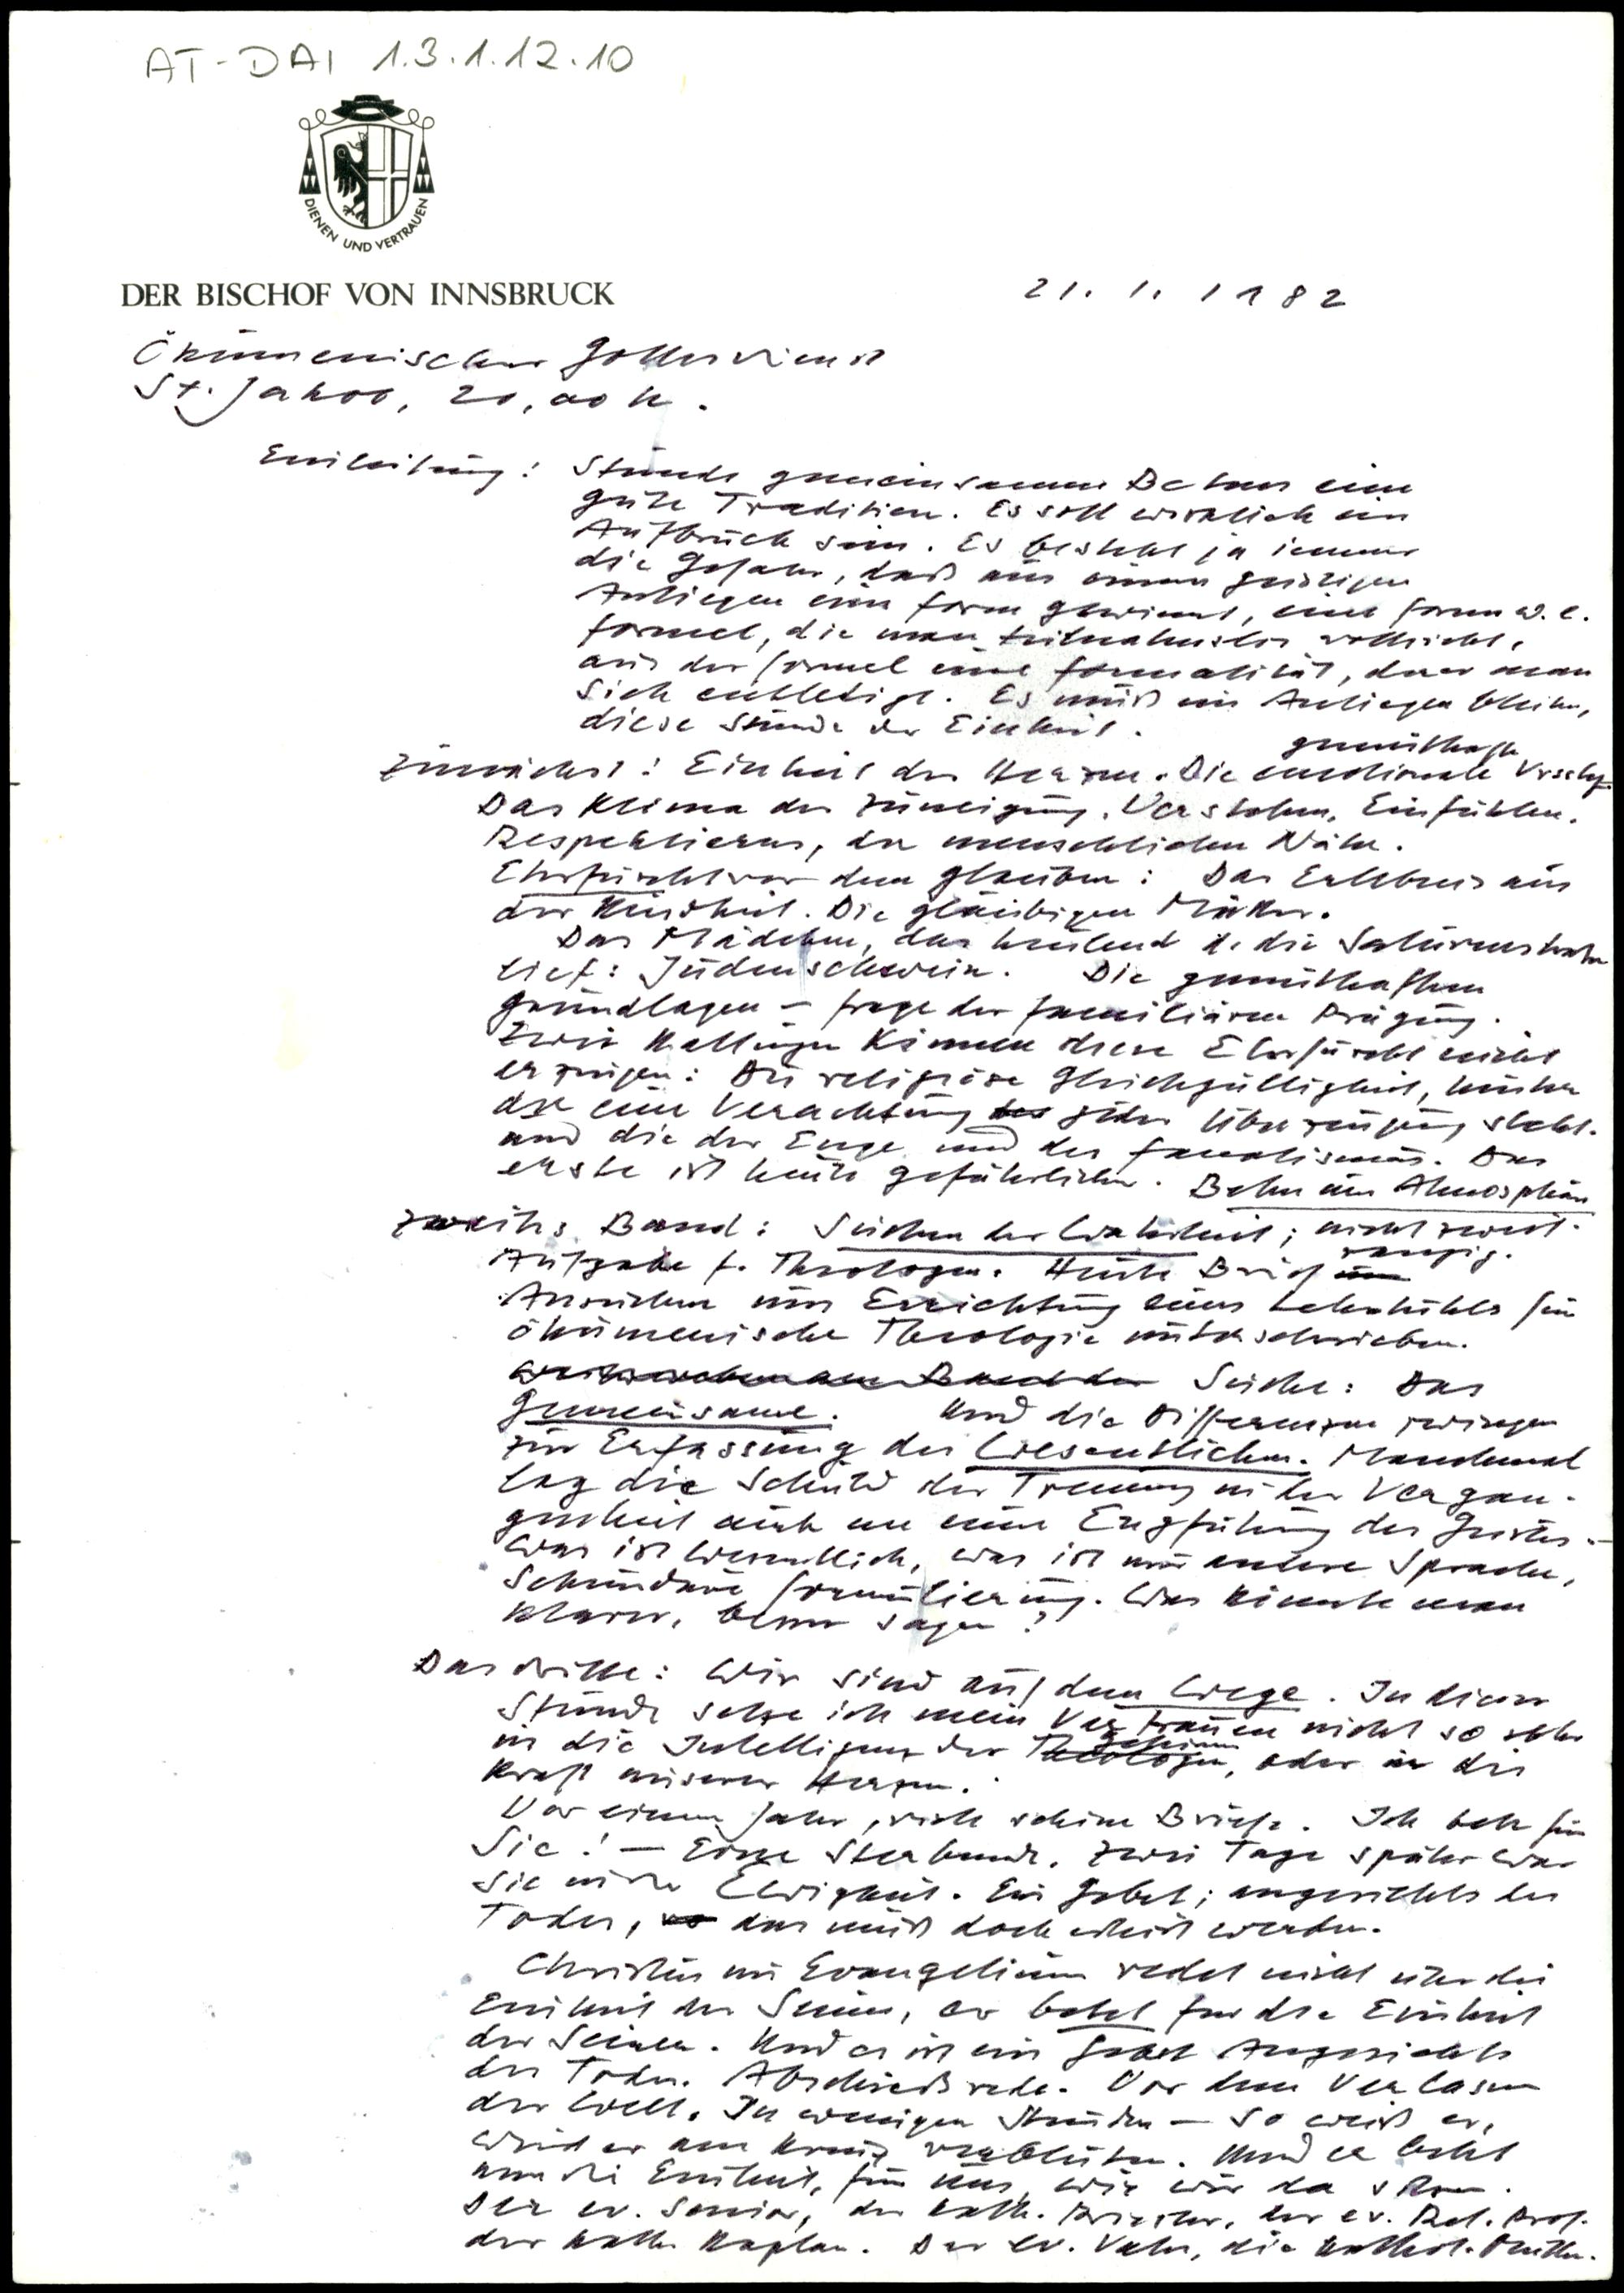 AT-DAI 1.3.1.12.10
DIENEN UND VERTRAUEN
DER BISCHOF VON INNSBRUCK
21. 1. 1982
Ökumenischer Gottesdienst
St. Jakob, 20,00 h.
Einleitung: Stunde gemeinsamen Betens eine
gute Tradition. Es soll wirklich ein
Aufbruch sein. Es besteht ja immer
die Gefahr, daß aus einem geistigen
Anliegen eine Form gewinnt, eine Form w. e.
Formel, die man teilnahmslos vollzieht,
aus der Formel eine Formalität, derer man
sich entledigt. Es muß ein Anliegen bleiben,
diese Stunde der Einheit.
gemüthafte
Zunächst: Einheit der Herzen. Die emotionale
Das Klima der Zuneigung. Verstehen, Einfühlen.
Respektierens, der menschlichen Nähe.
Ehrfurcht vor dem Glauben: Das Erlebnis aus
der Kindheit. Die gläubigen Mütter.
Das Mädchen, das heulend d. die Saturnstraße
lief: Judenschwein. Die gemüthaften
Grundlagen – Frage der familiären Prägung.
Zwei Haltungen können diese Ehrfurcht nicht
erzeugen: Die religiöse Gleichgültigkeit, hinter
der eine Verachtung jeder Überzeugung steht.
und die der Enge und des Fanatismus. Das
erste ist heute gefährlicher. Beten um Atmosphäre
Zweites Band: Suchen der Wahrheit; nicht zweit-
rangig.
Aufgabe f. Theologen. Heute Brief
Ansuchen um Errichtung eines Lehrstuhls für
ökumenische Theologie unterschrieben.
Suche: Das
Gemeinsame. Und die Differenzen zwingen
zur Erfassung des Wesentlichen. Manchmal
lag die Schuld der Trennung in der Vergan-
genheit auch an einer Engführung des Geistes.
Was ist wesentlich, was ist nur andere Sprache,
sekundäre Formulierung. Was könnte man
klarer, besser sagen?
Das dritte: Wir sind auf dem Wege. In dieser
Stunde setze ich mein Vertrauen nicht so sehr
in die Intelligenz der Theologen, oder in die
Kraft unserer Herzen.
Vor einem Jahr, viele schöne Briefe. Ich bete für
Sie! – Eine Sterbende. Zwei Tage später war
sie in der Ewigkeit. Ein Gebet; angesichts des
Todes, das muß doch erhört werden.
Christus im Evangelium redet nicht über die
Einheit der Seinen, er betet für die Einheit
der Seinen. Und es ist ein Gebet Angesichts
des Todes. Abschiedsrede. Vor dem Verlassen
der Welt. In wenigen Stunden – so weiß er,
wird er am Kreuz verbluten. Und er betet
um die Einheit, für uns, wie wir da
Der ev. Senior, der kath. Priester, der ev. Rel. Prof.
der kath. Kaplan. Der ev. Vater, die kathol. Mutter.